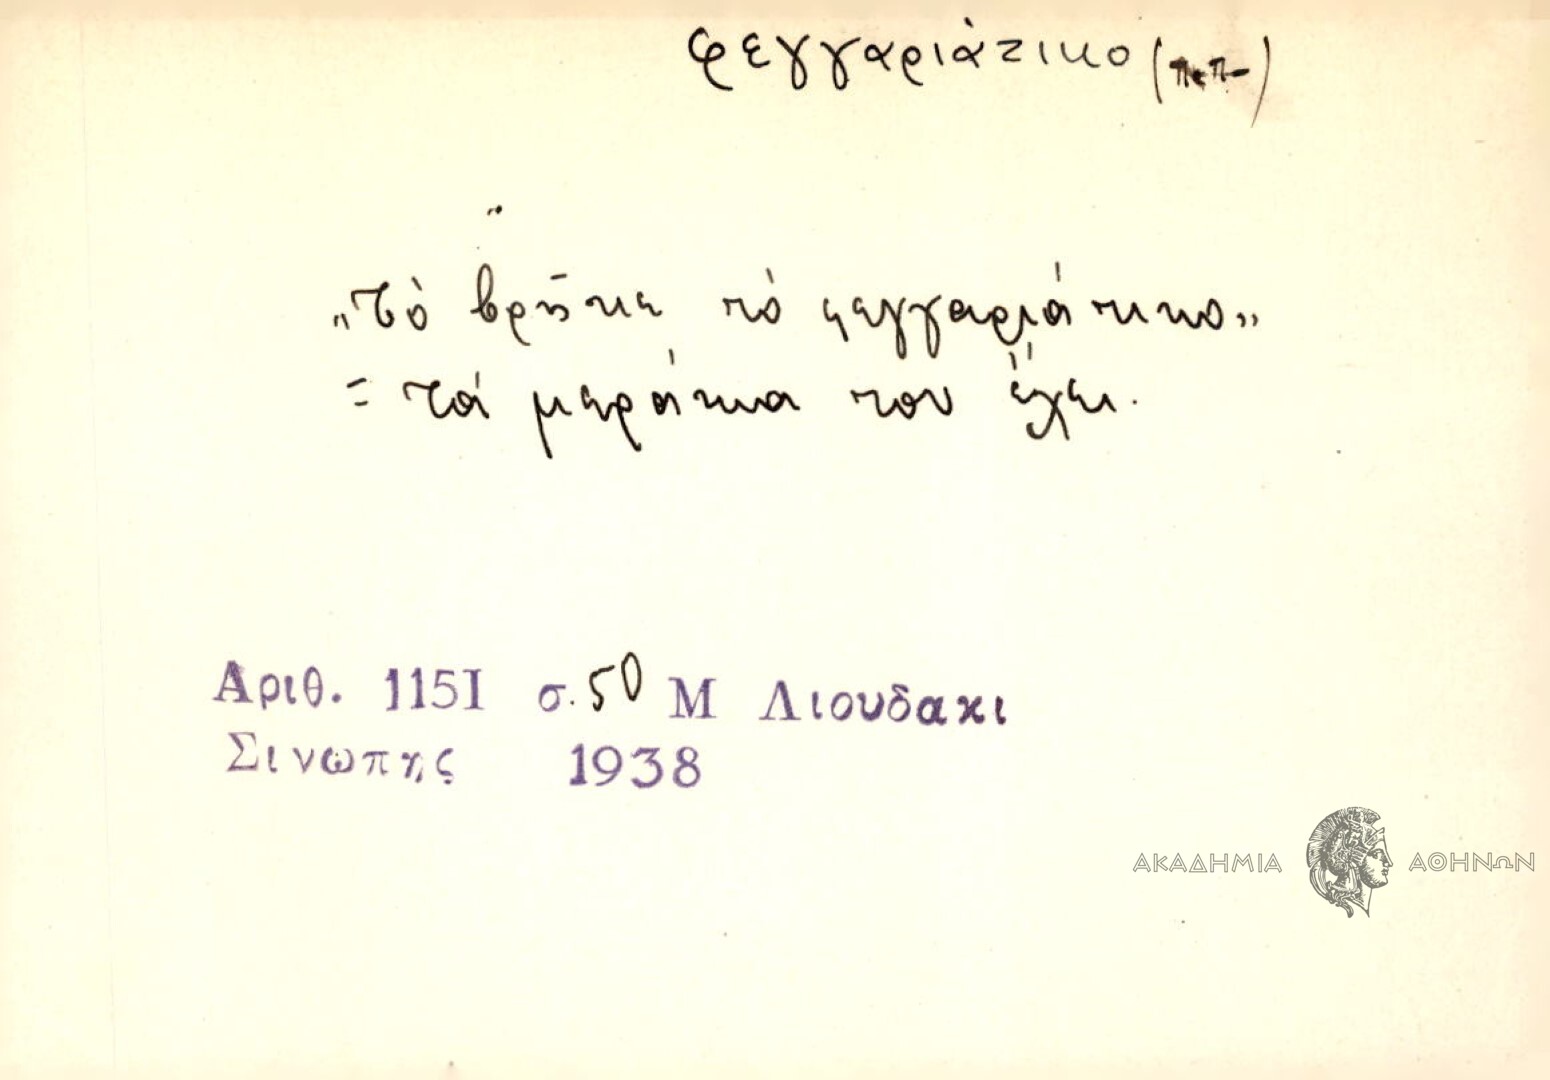 φεγγαριάτικο
„Τὸ βρῆκε τὸ φεγγαριάτικο„
= τά μεράκια του ἔχει.
Αριθ. 1151 σ. 50 Μ Λιουδακι
Σινωπης 1938
ΑΚΑΔΗΜΙΑ ΑΘΗΝΩΝ